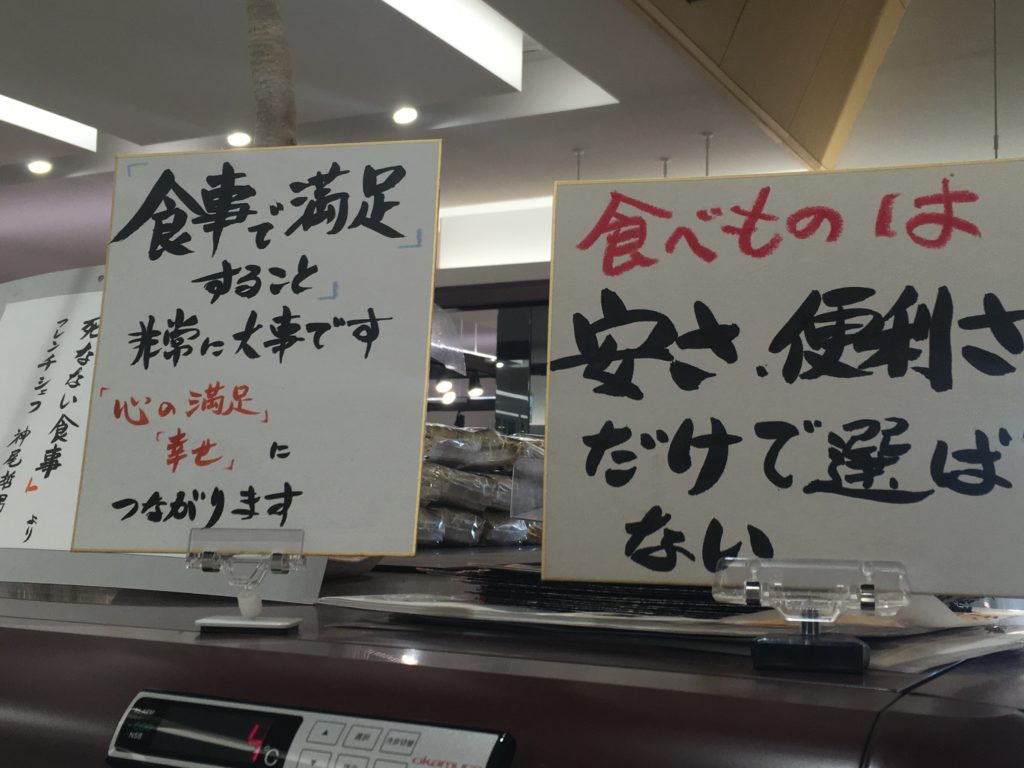 死なない食事」より
フレンチシェフ 神尾哲男
「食事で満足」
すること」
非常に大事です
「心の満足」
「幸せ」に
つながります
食べものは
安さ、便利さ
だけで選ば
ない
NSB
4℃
選択
okamura